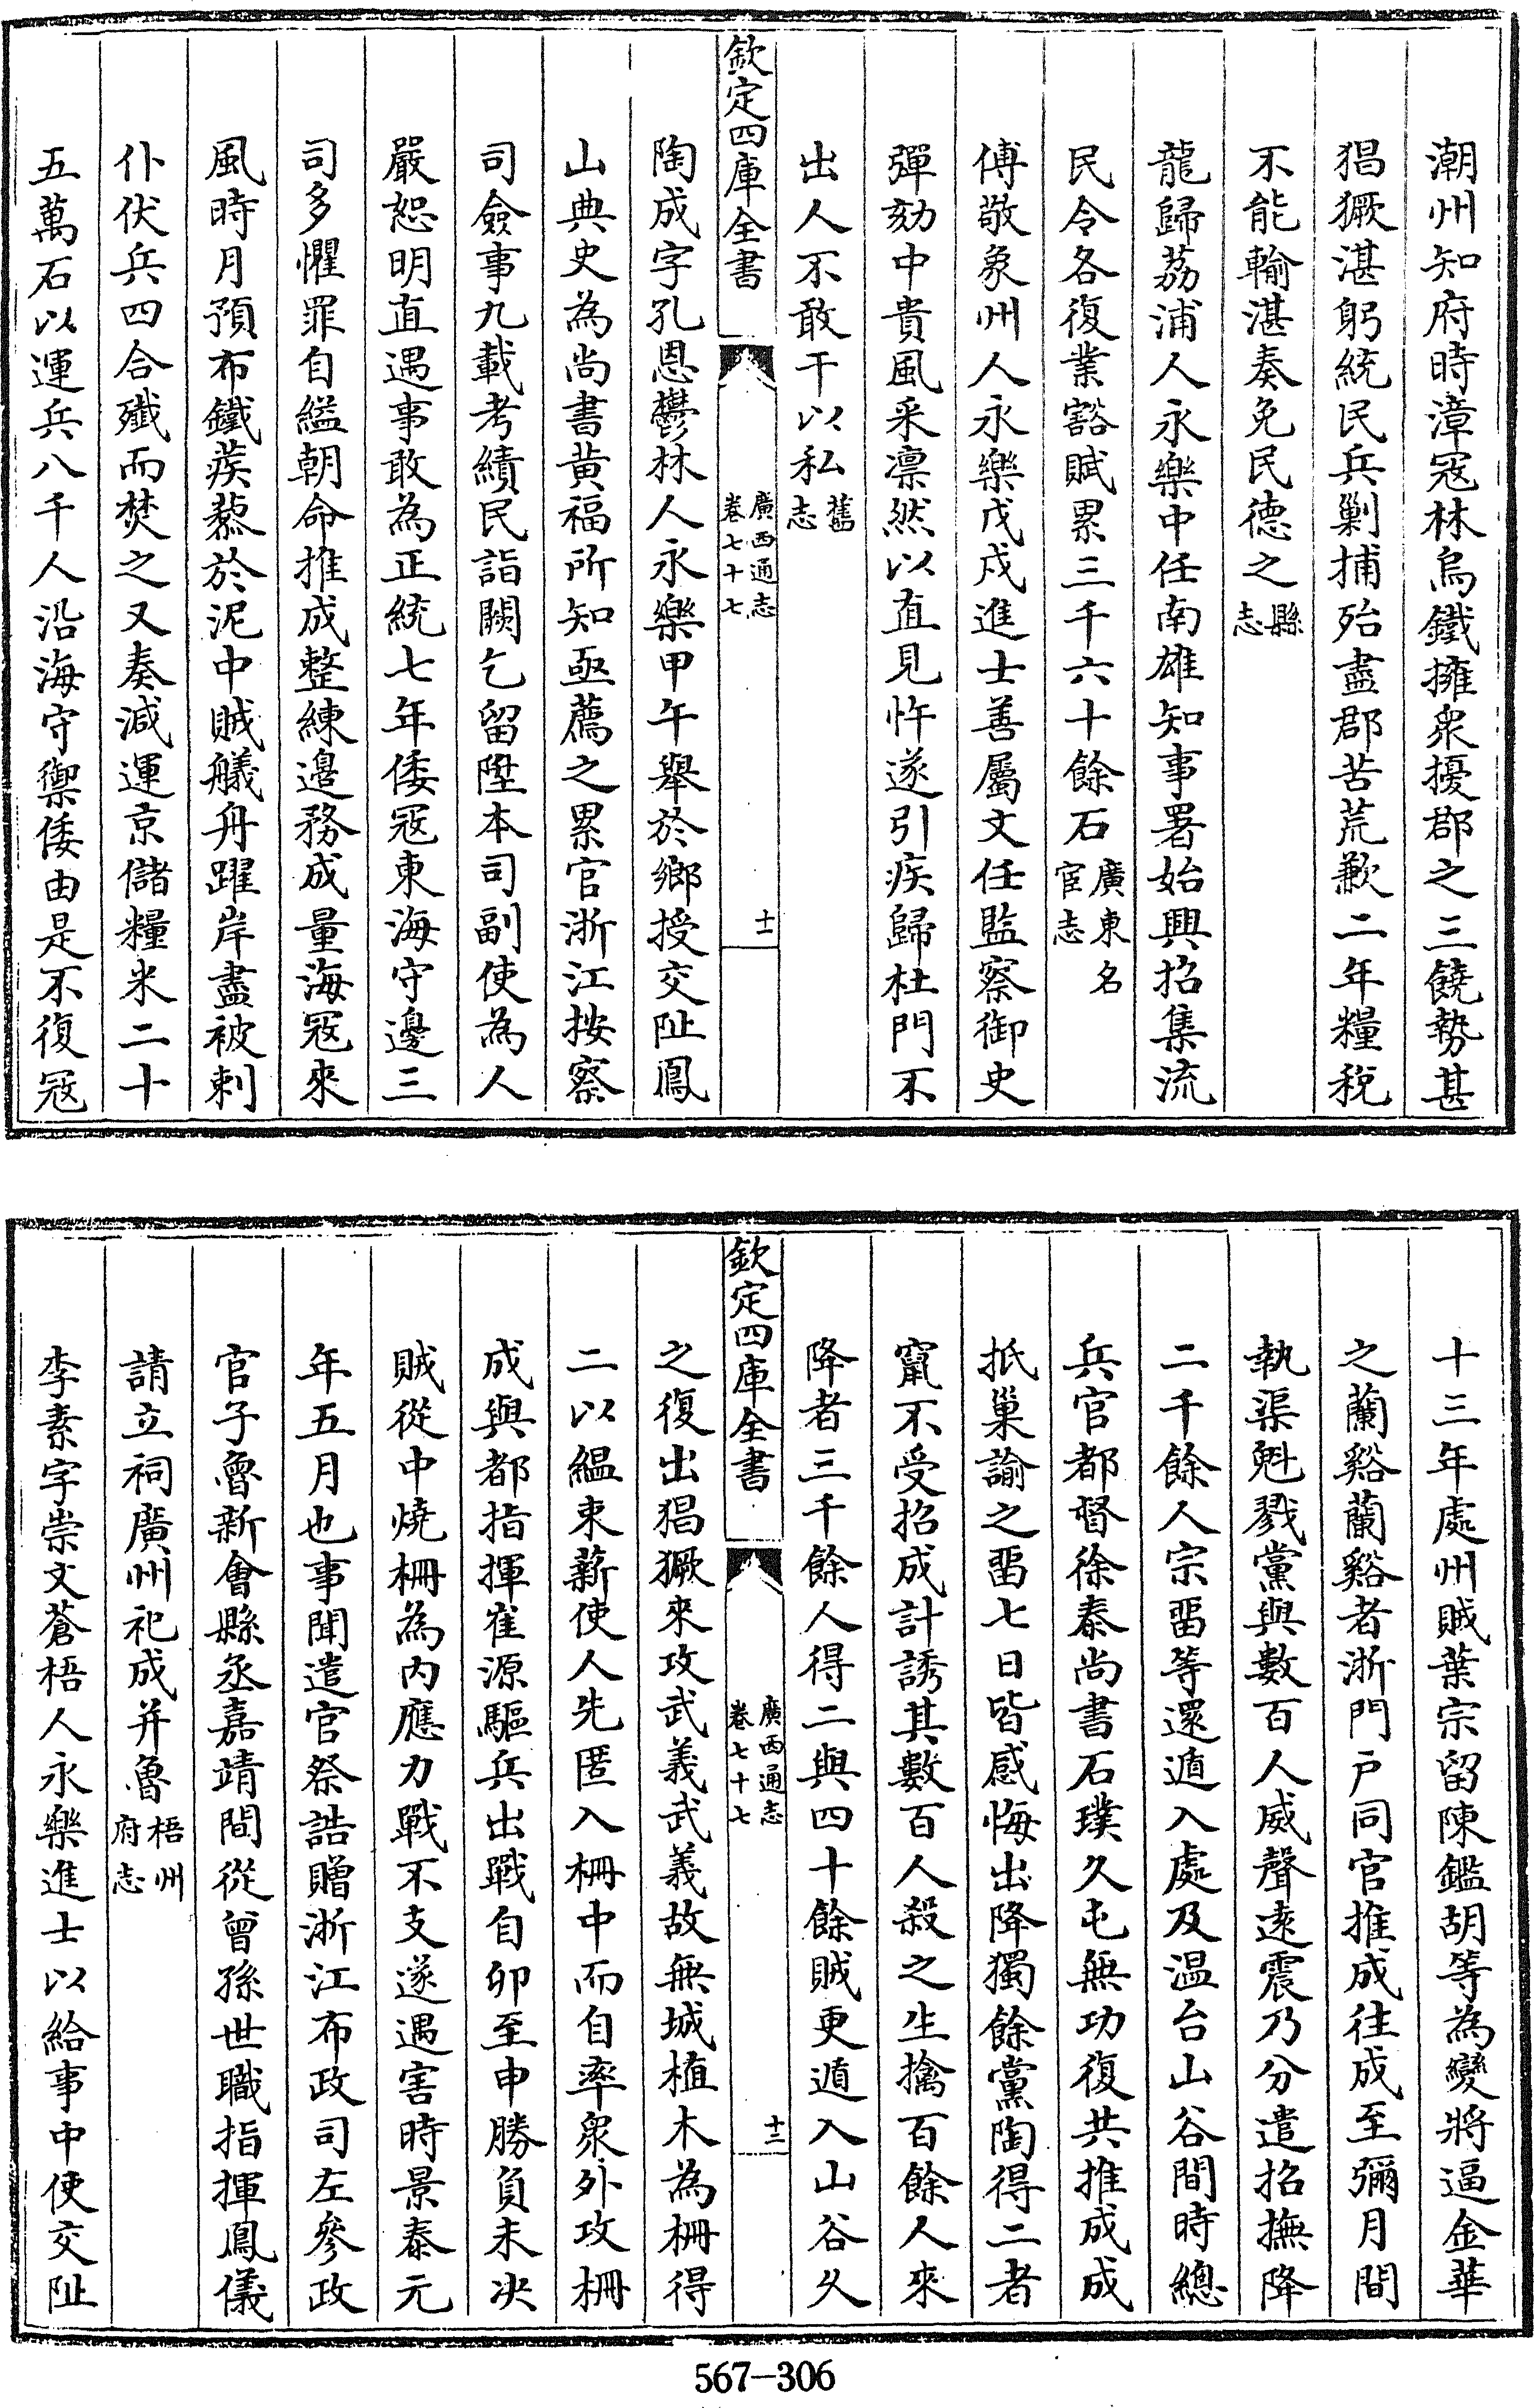 潮州知府時漳冦林烏鐵擁衆擾郡之三饒勢甚
猖獗湛躬統民兵剿捕殆盡郡苦荒歉二年糧稅
不能輸湛奏免民德之縣志
龍歸荔浦人永樂中任南雄知事署始興招集流
民令各復業豁賦累三千六十餘石廣東名宦志
傅敬象州人永樂戊戌進士善屬文任監察御史
彈劾中貴風采凛然以直見忤遂引疾歸杜門不
出人不敢干以私舊志
欽定四庫全書
廣西通志
卷七十七
十一
陶成字孔恩鬱林人永樂甲午舉於鄉授交阯鳳
山典史為尚書黃福所知亟薦之累官浙江按察
司僉事九載考績民詣闕乞留陞本司副使為人
嚴恕明直遇事敢為正統七年倭冦東海守邊三
司多懼罪自縊朝命推成整練邊務成量海冦來
風時月預布鐵蒺藜於泥中賊艤舟躍岸盡被刺
仆伏兵四合殲而焚之又奏減運京儲糧米二十
五萬石以運兵八千人沿海守禦倭由是不復冦
十三年處州賊葉宗留陳鑑胡等為變將逼金華
之蘭谿蘭谿者浙門戶同官推成往成至彌月間
執渠魁戮黨與數百人威聲遠震乃分遣招撫降
二千餘人宗畱等還遁入處及温台山谷間時總
兵官都督徐㤗尚書石璞久屯無功復共推成成
抵巢諭之畱七日皆感悔出降獨餘黨陶得二者
竄不受招成計誘其數百人殺之生擒百餘人來
降者三千餘人得二與四十餘賊更遁入山谷久
欽定四庫全書
廣西通志
卷七十七
十二
之復出猖獗來攻武義武義故無城植木為柵得
二以緼束薪使人先匿入柵中而自率衆外攻柵
成與都指揮崔源驅兵出戰自卯至申勝負未决
賊從中燒柵為内應力戰不支遂遇害時景泰元
年五月也事聞遣官祭誥贈浙江布政司左參政
官子魯新會縣丞嘉靖間從曾孫世職指揮鳳儀
請立祠廣州祀成并魯梧州府志
李素字崇文蒼梧人永樂進士以給事中使交阯
567-306